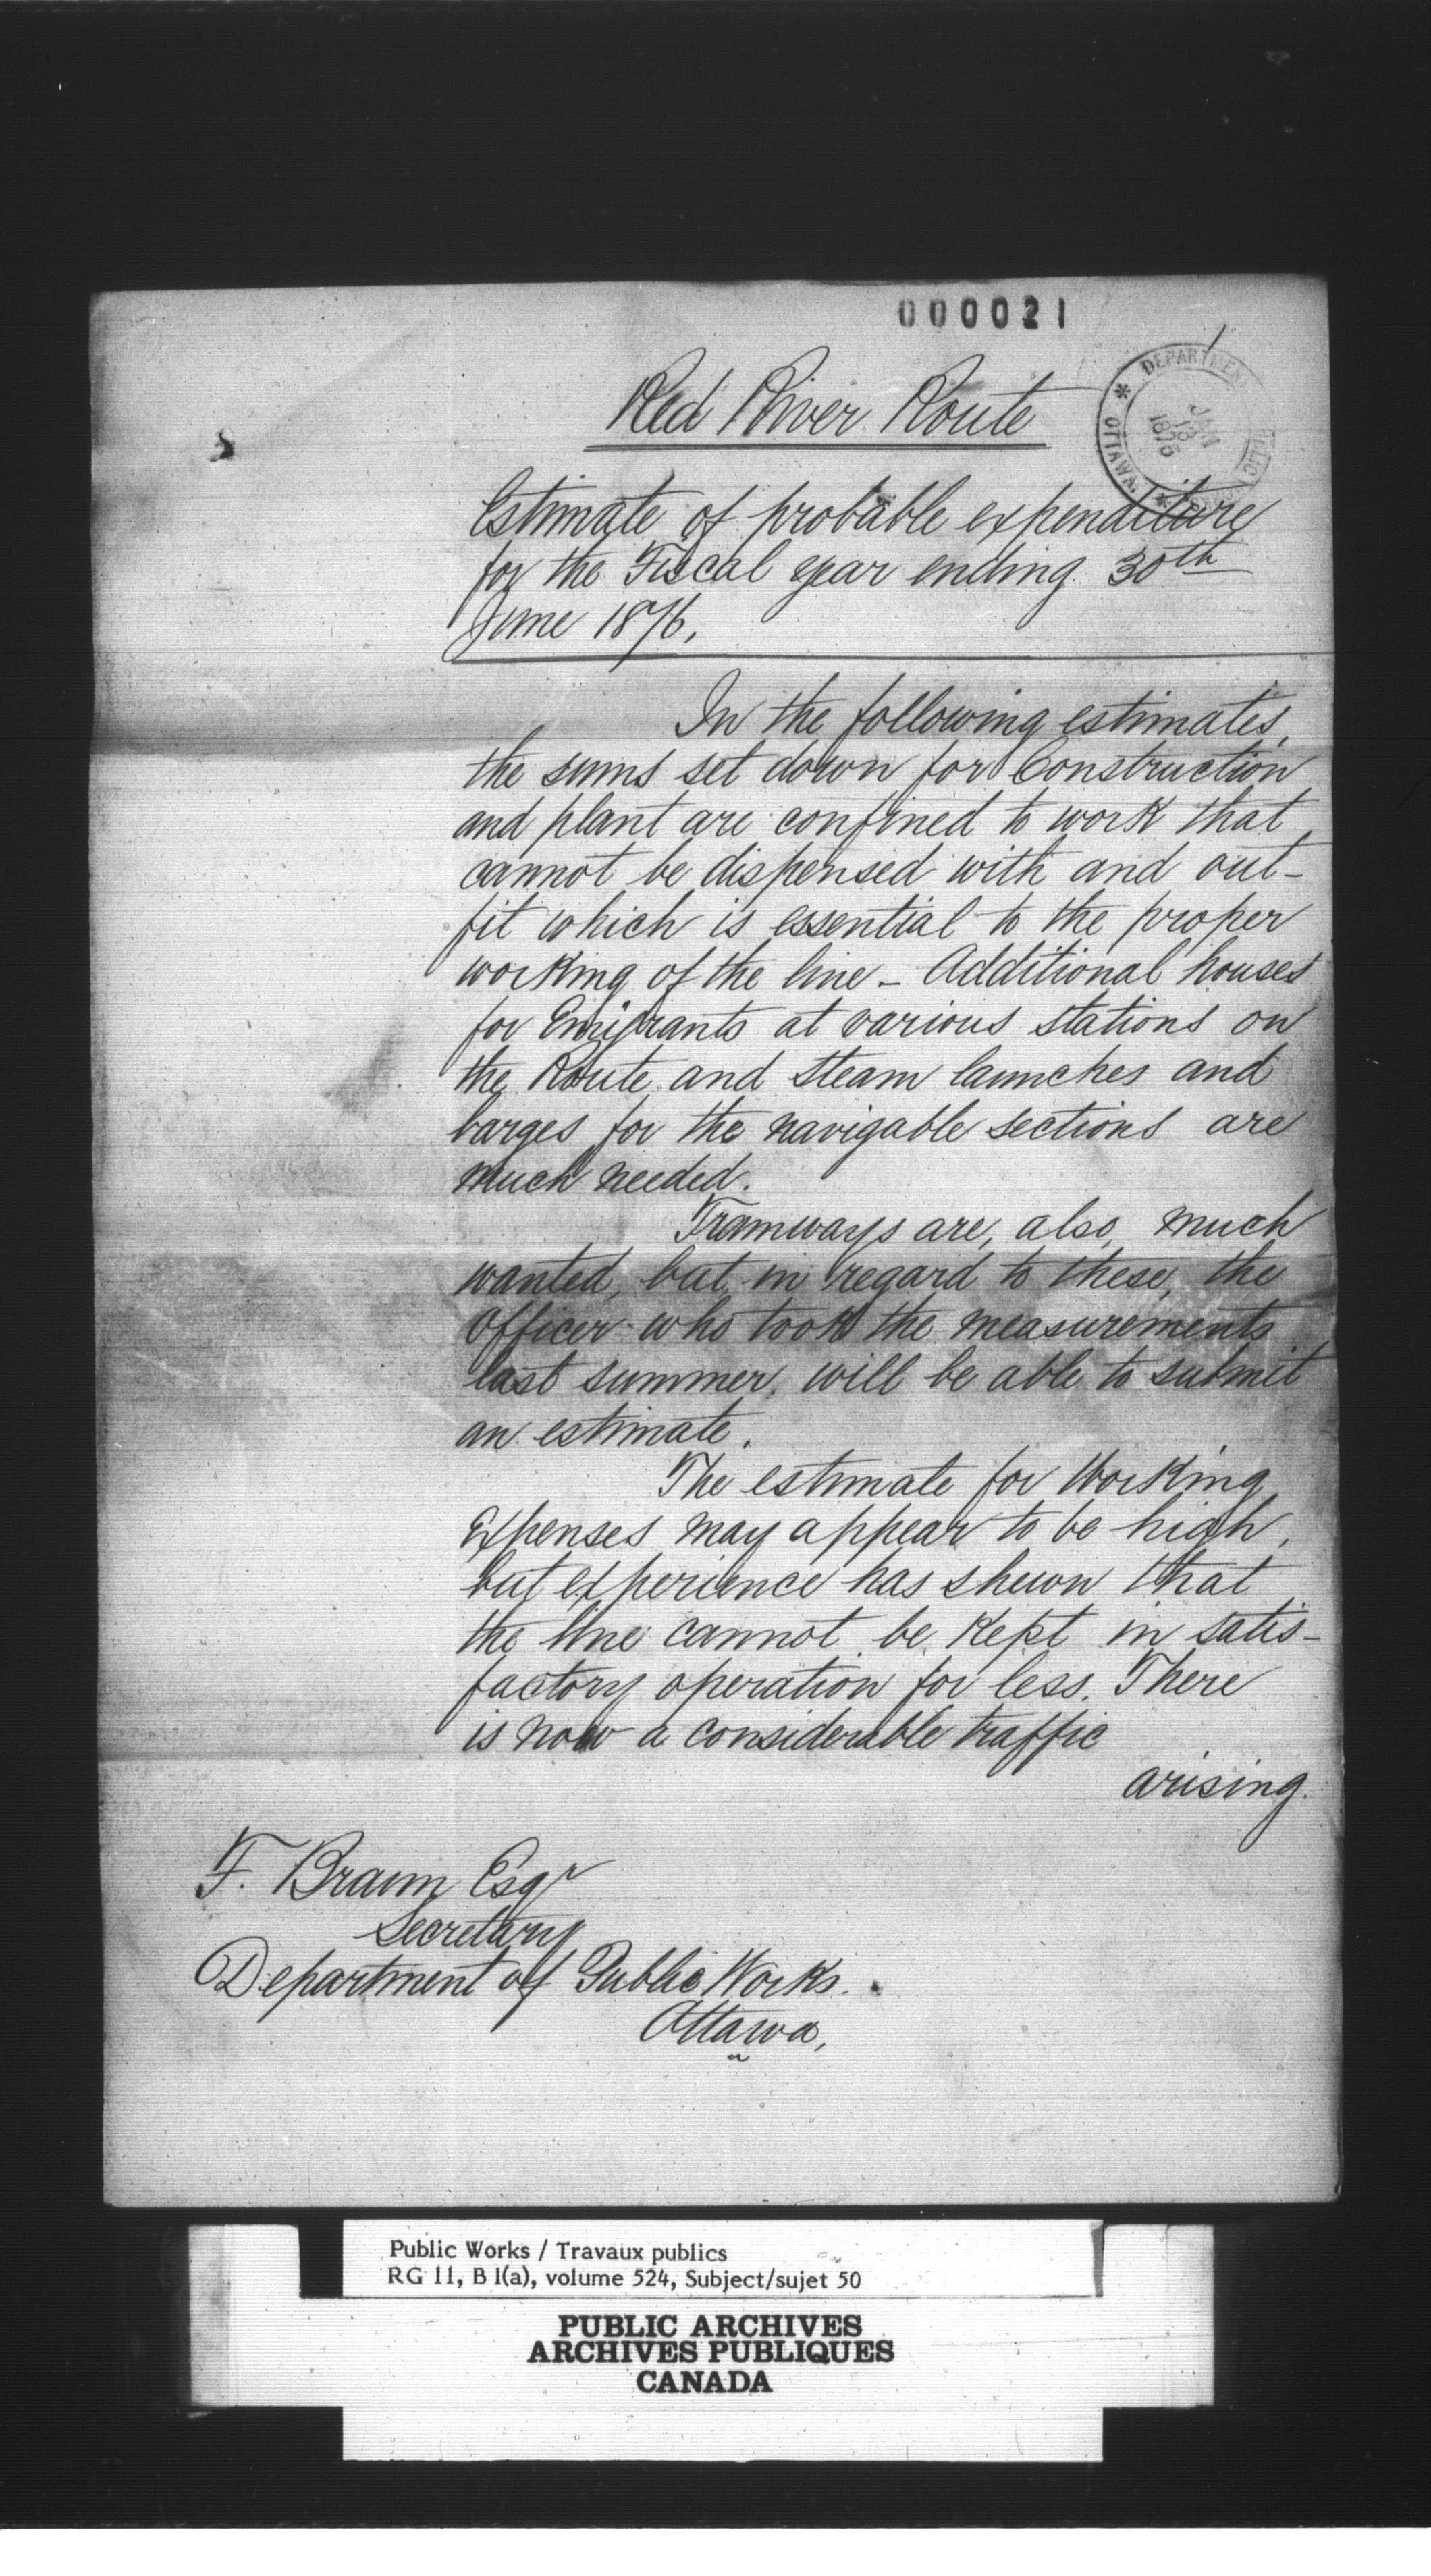 000021
DEPARTMENT PUBLIC
* OTTAWA. *
JAN
18
1875
Red River Route
Estimate of probable expenditure
for the Fiscal year ending 30th
June 1876,
In the following estimates,
the sums set down for Construction
and plant are confined to work that
cannot be dispensed with and out-
fit which is essential to the proper
working of the line - Additional houses
for Emigrants at various stations on
the Route and steam launches and
barges for the navigable sections are
much needed.
Tramways are, also, much
wanted, but, in regard to these, the
Officer who took the measurements
last summer, will be able to submit
an estimate.
The estimate for Working
Expenses may appear to be high,
but experience has shewn that
the line cannot be kept in satis-
factory operation for less. There
is now a considerable traffic
arising.
F. Braun Esqr
Secretary
Department of Public Works.
Ottawa,
Public Works / Travaux publics
RG 11, B 1(a), volume 524, Subject/sujet 50
PUBLIC ARCHIVES
ARCHIVES PUBLIQUES
CANADA